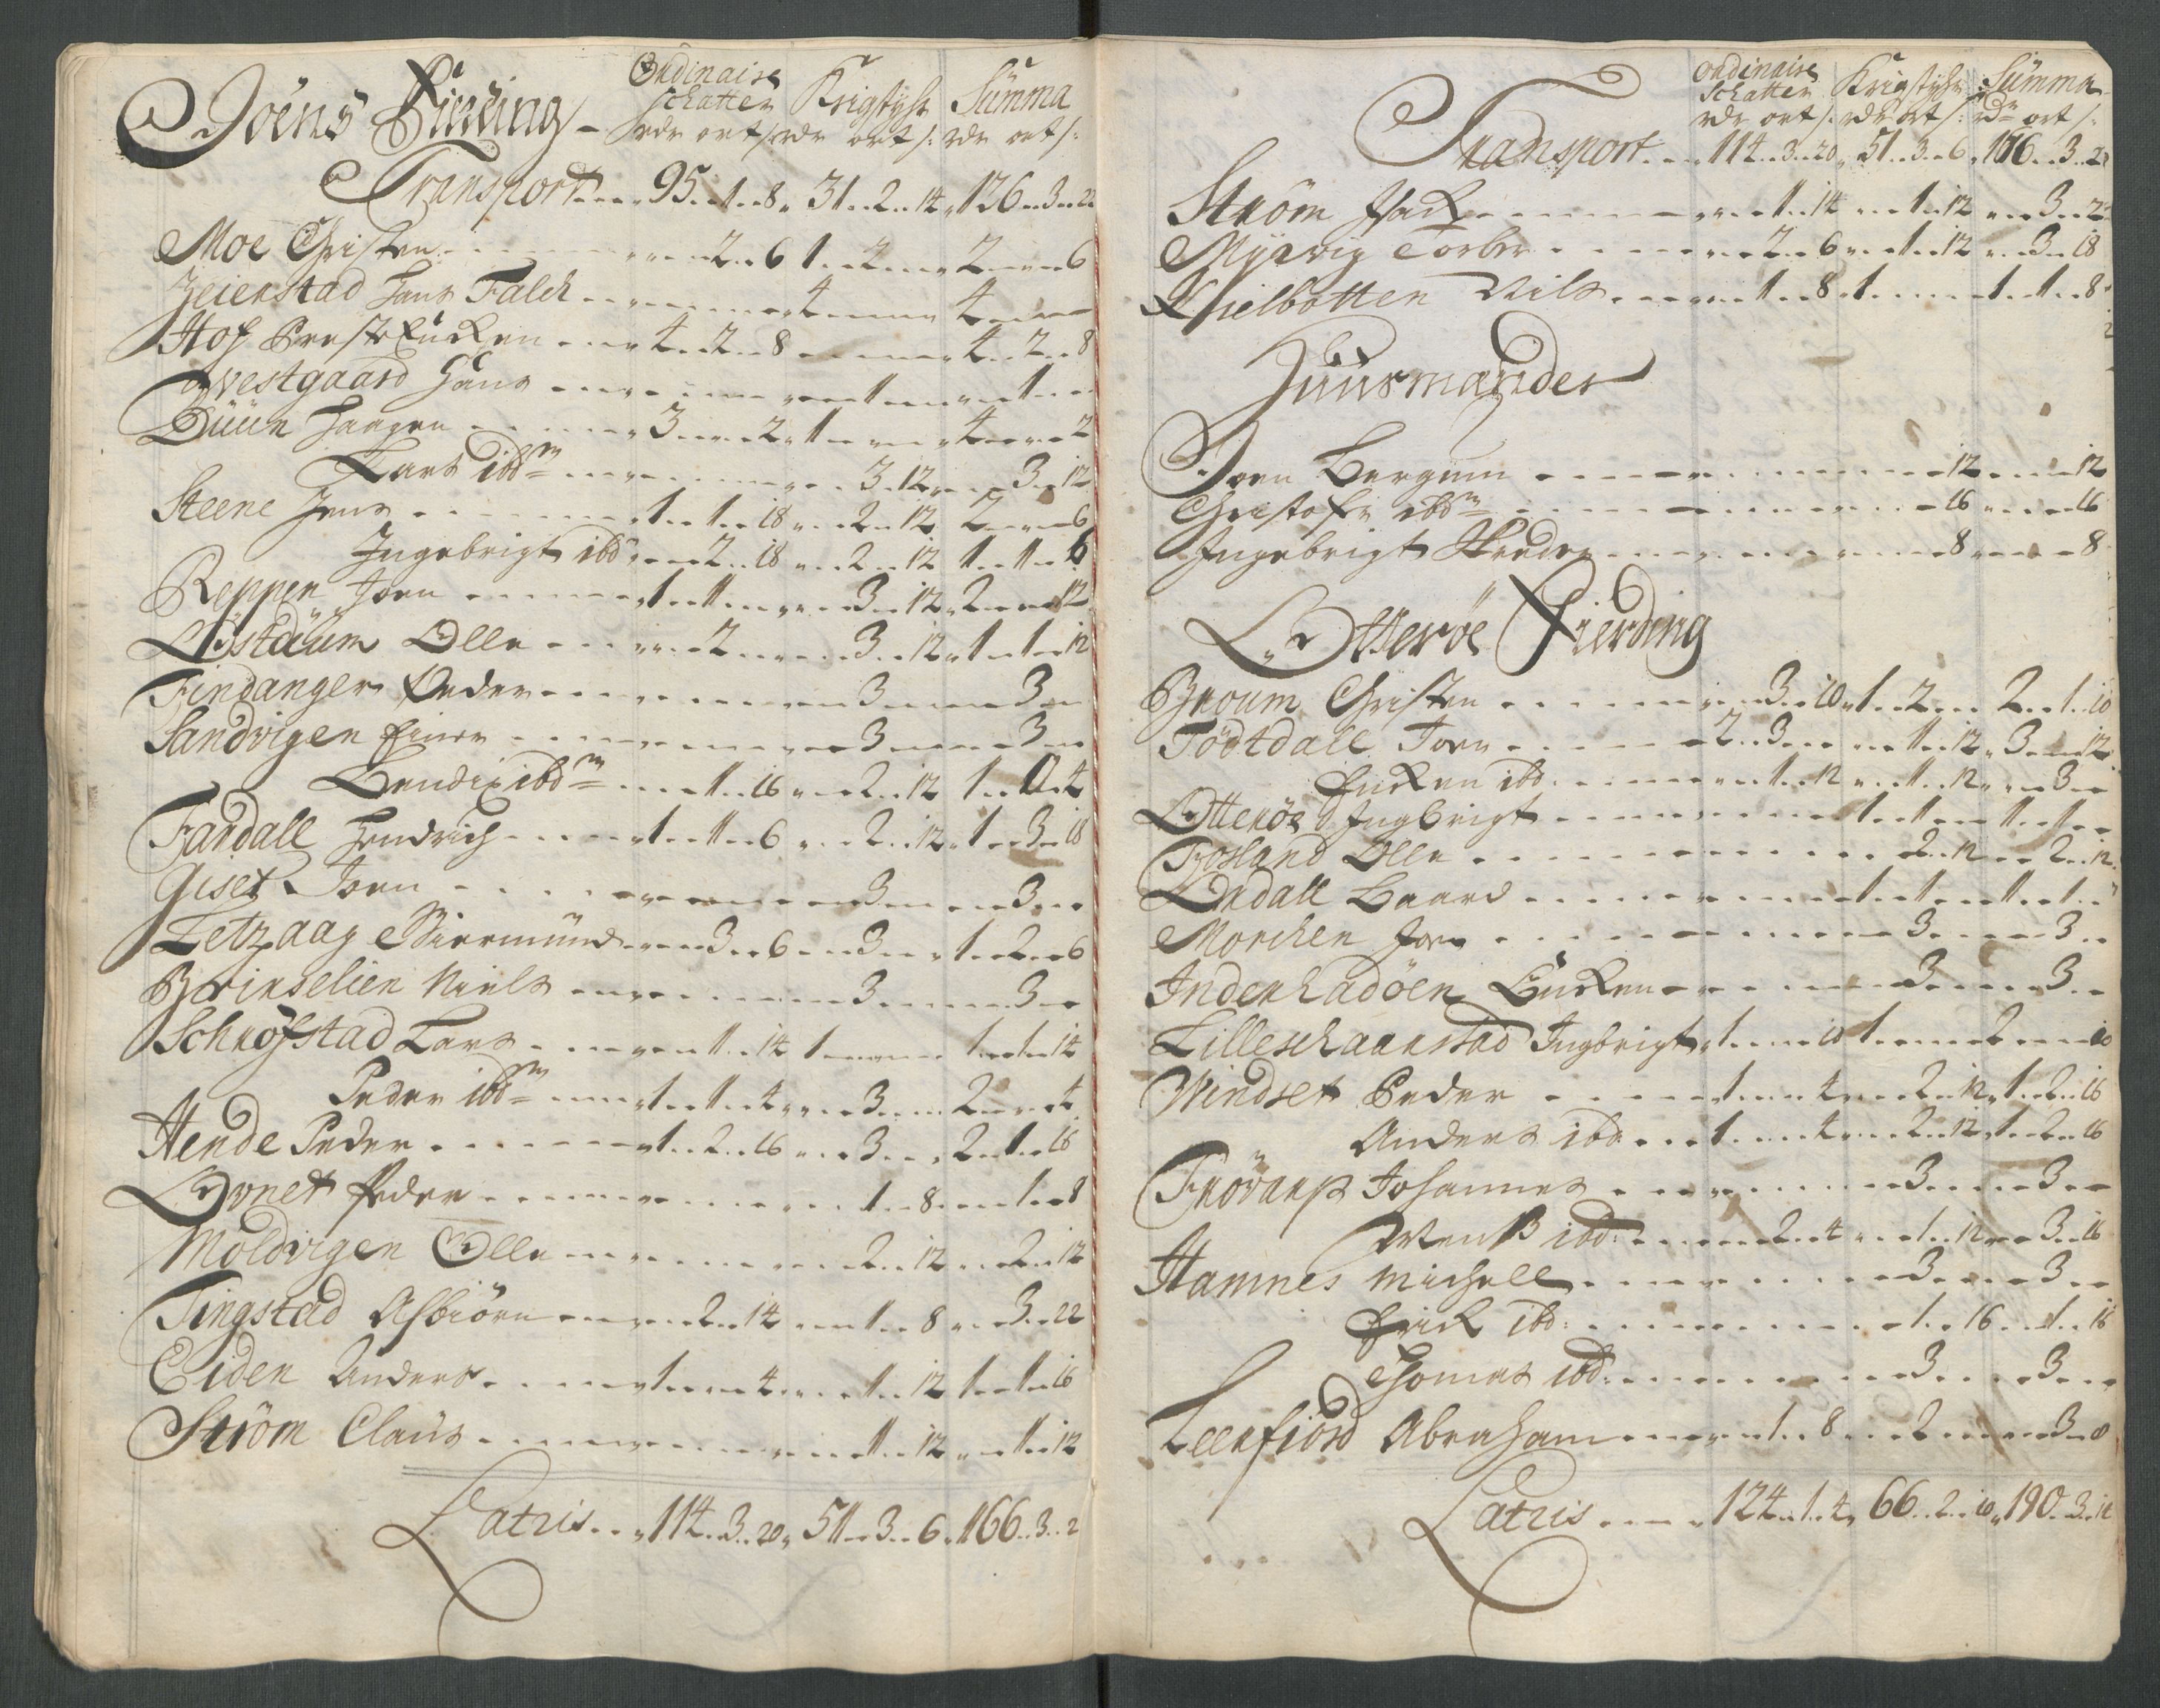 Joens Fierding
Ordinaire schatter Krigstyhr Summa
rdr ort s: rdr ort s: rdr ort s:
Transport 95 1 8 31 2 14 126 3 22
Moe Christen 2 6 1 2 2 6
Zeierstad Hans Falch 4 4
Hof Preste Enken 4 2 8 4 2 8
Westgaard Hans 1 1
Duun Haagen 3 2 1 4 2
Lars ibdm 3 12 3 12
Steene Jens 1 1 18 2 12 2 6
Ingebrigt ibd 2 18 2 12 1 1 6
Reppen Joen 1 1 3 12 2 12
Olle 2 3 12 1 1 12
Findanger Peder 3 3
Sandvigen Einer 3 3
Bendix ibdm 1 16 2 12 1 0 4
Fardall Hendrich 1 1 6 2 12 1 3 18
Giset Joen 3 3
Letzaag Siermund 3 6 3 1 2 6
Brinselien Niels 3 3
Schröfstad Lars 1 14 1 1 1 14
Peder ibdm 1 1 4 3 2 4
Hende Peder 1 2 16 3 2 1 16
Ovnet Peder 1 8 1 8
Moldvigen Olle 2 12 2 12
Tingstad Asbiörn 2 14 1 8 3 22
Eiden Anders 1 4 1 12 1 1 16
Ström Claus 1 12 1 12
Latris 114 3 20 51 3 6 166 3 2
Ordinaire schatter Krigstyhr Summa
rdr ort s: rdr ort s: rdr ort s:
Transport 114 3 20 51 3 6 166 3 2
Ström Isack 1 14 1 12 3 2
Myrvig Torber 2 6 1 12 3 18
Kielbotten Nils 1 8 1 1 1 8
Huusmænder
Joen Bergum 12 12
Christofer ibdm 16 16
Ingebrigt 8 8
Otterøe Fierding
Broum Christen 3 10 1 2 2 1 10
Födtdall Joen 2 3 1 12 3 12
Enken ibd: 1 12 1 12 3
Otterøe Ingbrigt 1 1 1 1
Fosland Olle 2 12 2 12
Ordall Baard 1 1 1 1
Morchen Joen 3 3
Inderhadöen Enken 3 3
Lilleschaarstad Ingbrigt 1 10 1 2 10
Windset Peder 1 4 2 12 1 2 16
Anders ibd 1 4 2 12 1 2 16
Johannes 3 3
ibd: 2 4 1 12 3 16
Hamnes Michell 3 3
Erick ibd: 1 16 1 16
Thomas ibd: 3 3
Leerfiord Abraham 1 8 2 3 8
Latris 124 1 4 66 2 10 190 3 14